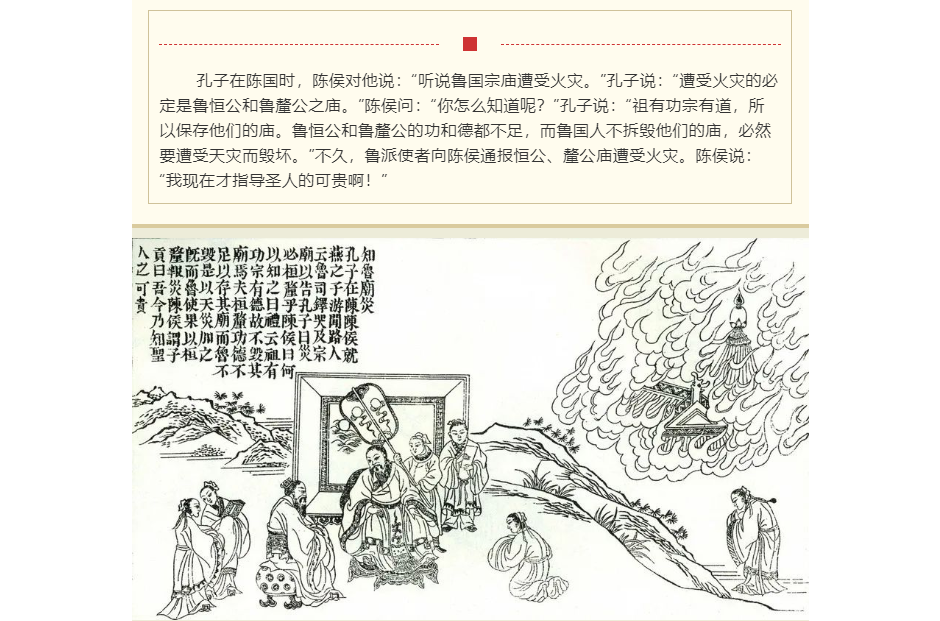 孔子在陈国时，陈侯对他说：“听说鲁国宗庙遭受火灾。”孔子说：“遭受火灾的必
定是鲁恒公和鲁釐公之庙。”陈侯问：“你怎么知道呢？”孔子说：“祖有功宗有道，所
以保存他们的庙。鲁恒公和鲁釐公的功和德都不足，而鲁国人不拆毁他们的庙，必然
要遭受天灾而毁坏。”不久，鲁派使者向陈侯通报恒公、釐公庙遭受火灾。陈侯说：
“我现在才指导圣人的可贵啊！”
知魯廟災
孔子在陳陳侯就
燕之于游聞路人
云魯司鐸災及宗
廟以告孔子曰災
必桓釐乎陳侯曰何
以知之曰禮云祖有
功宗有德故不毀其
廟焉夫桓釐功德不
足以存其廟而魯不
毀是以天災加之
既而魯使果以桓
釐報災陳侯謂子
貢曰吾今乃知聖
人之可貴